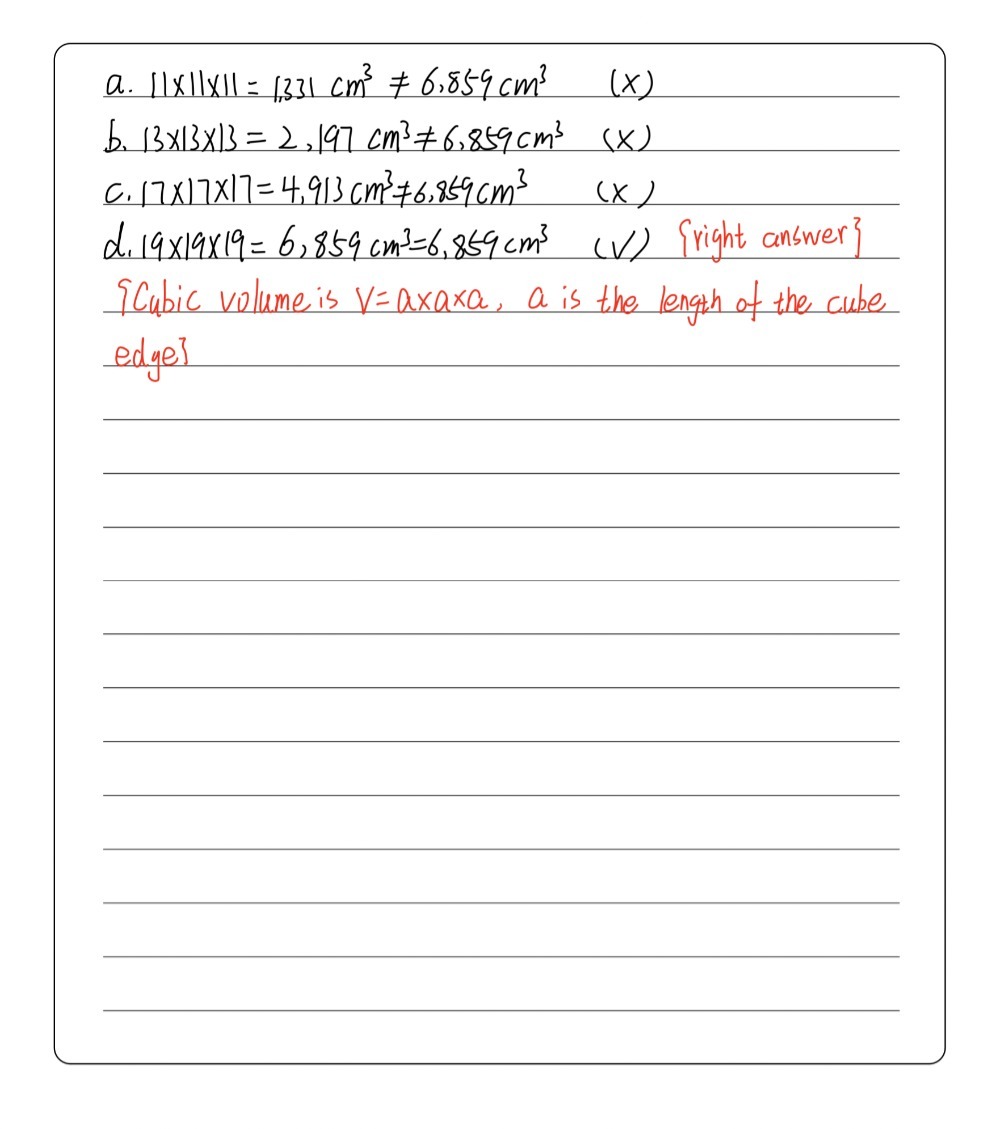 a. 11x11x11 = 1,331 cm³ ≠ 6,859 cm³ (x)
b. 13x13x13 = 2,197 cm³ ≠ 6,859 cm³ (x)
c. 17x17x17 = 4,913 cm³ ≠ 6,859 cm³ (x)
d. 19x19x19 = 6,859 cm³ = 6,859 cm³ (√) {right answer}
{Cubic volume is V=axaxa, a is the length of the cube
edge}